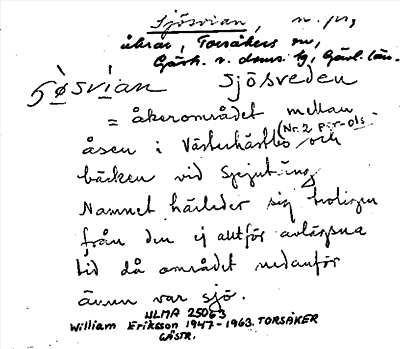 Sjösvian, n. pr,
åkrar, Torsåkers sn,
Gästr. v. doms. tg, Gävl. län.
Sjösveden
= åkerområdet mellan
åsen i Västerhästbo (Nr. 2 Per-Ols) och
bäcken vid
Namnet härleder sig troligen
från den ej alltför avlägsna
tid då området nedanför
även var sjö.
ULMA 25063
William Eriksson 1947-1963. TORSÅKER
GÄSTR.